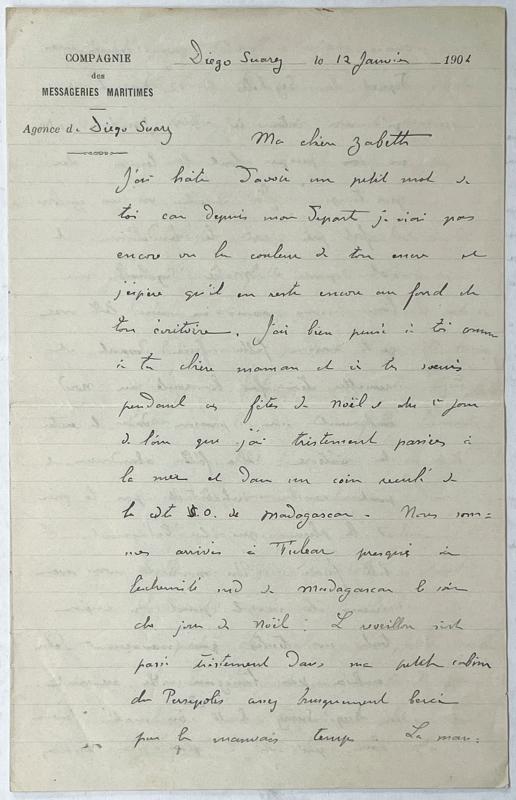 COMPAGNIE
des
MESSAGERIES MARITIMES
Diego Suarez le 12 Janvier 1902
Agence de Diego Suarez
Ma chère Zabeth
J'ai hâte d'avoir un petit mot de
toi car depuis mon départ je n'ai pas
encore vu la couleur de ton encre et
j'espère qu'il en reste encore au fond de
ton écritoire. J'ai bien pensé à toi comme
à ta chère maman et à tes soeurs
pendant ces fêtes de Noël et du 1er jour
de l'an que j'ai tristement passées à
la mer et dans un coin reculé de
la côte S.O. de Madagascar. Nous som=
mes arrivés à Tulear presque à
l'extremité sud de Madagascar le soir
du jour de Noël : Le reveillon s'est
passé tristement dans ma petite cabine
du Persepolis assez brusquement bercé
par le mauvais temps. La mau=